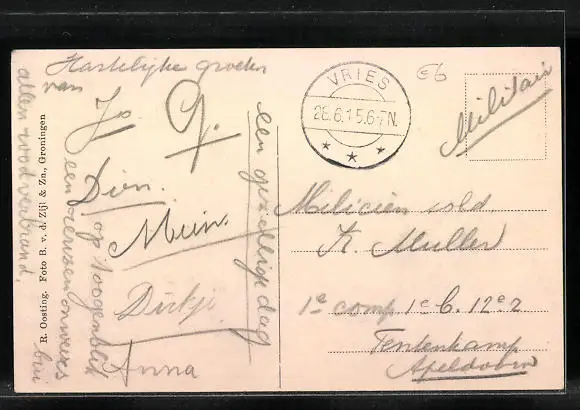 Hartelijke groeten
van
Jo.
G.
Dien.
Mien.
Dirkje
Anna
een gezellige dag
op 't oogenblik
een onweer
allen roodverbrand.
R. Oosting. Foto B. v. d. Zijl & Zn., Groningen
VRIES
26.6.15.6-7N.
Militair
Milicien sold.
K. Muller
1e comp 1e b. 12e r
Tentenkamp
Apeldoorn